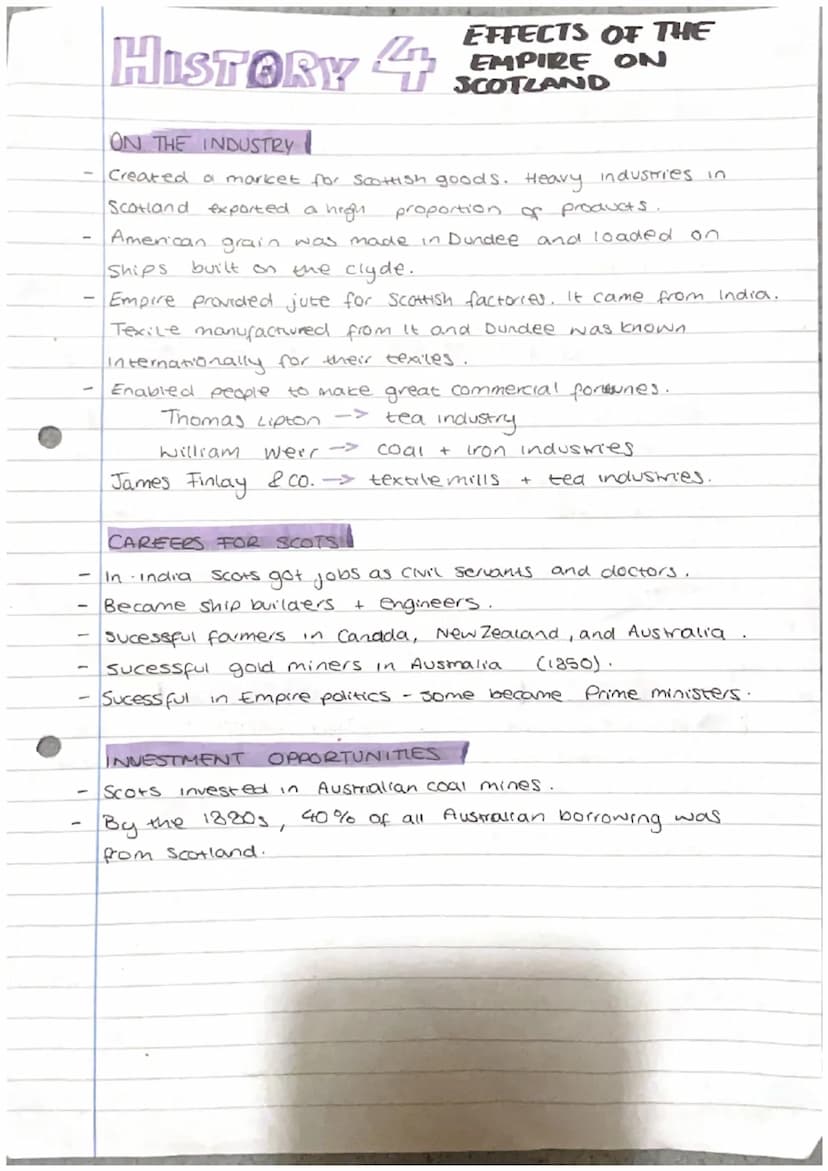 HISTORY 4
EFFECTS OF THE
EMPIRE ON
SCOTLAND
ON THE INDUSTRY
- Created a market for Scottish goods. Heavy industries in
Scotland exported a high proportion of products.
- American grain was made in Dundee and loaded on
ships built on the clyde.
- Empire provided jute for Scottish factories. It came from India.
Texile manufactured from it and Dundee was known
internationally for their texiles.
- Enabled people to make great commercial fortunes.
Thomas Lipton -> tea industry
William Weir -> coal + iron industries
James Finlay & CO. -> textile mills + tea industries.
CAREERS FOR SCOTS
- In India Scots got jobs as civil servants and doctors.
- Became ship builders + engineers.
- Sucessful farmers in Canada, New Zealand, and Australia.
- Sucessful gold miners in Australia (1850).
- Sucessful in Empire politics - some became Prime ministers.
INVESTMENT OPPORTUNITIES
- Scots invested in Australian coal mines.
- By the 1880s, 40% of all Australian borrowing was
from Scotland.